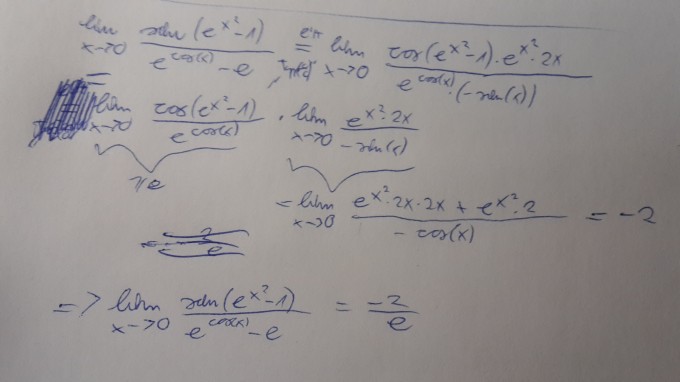 lim x→0 sin(e^{x²}-1) / (e^{cos(x)} - e) = lim x→0 cos(e^{x²}-1)·e^{x²}·2x / (e^{cos(x)}·(-sin(x)))
= lim x→0 cos(e^{x²}-1) / e^{cos(x)} · lim x→0 e^{x²}·2x / (-sin(x))
= lim x→0 (e^{x²}·2x·2x + e^{x²}·2) / (-cos(x)) = -2
=> lim x→0 sin(e^{x²}-1) / (e^{cos(x)} - e) = -2/e